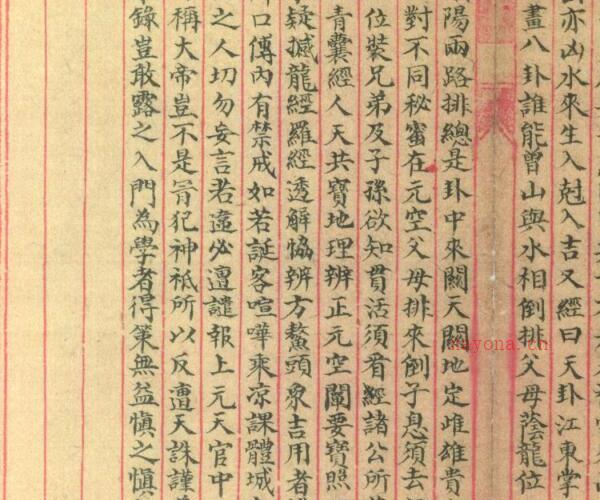 亦凶水來生入尅入吉又經曰天卦江東掌
畫八卦誰能曽山與水相倒排父母蔭龍位
陽兩路排總是卦中來關天關地定雌雄貴
對不同秘宻在元空父母排來倒子息須去
位裝兄弟及子孫欲知貫活須看經諸公所
青囊經人天共寶地理辨正元空闡要寶照
疑撼龍經羅經透解恊辨方鰲頭衆吉用者
口傳內有禁戒如若誕客喧嘩乘凉課體城
之人切勿妄言若違必遭譴報上元天官中
稱大帝豈不是冐犯神祗所以反遭天誅謹
錄豈敢露之入門為學者得策無益愼之愼